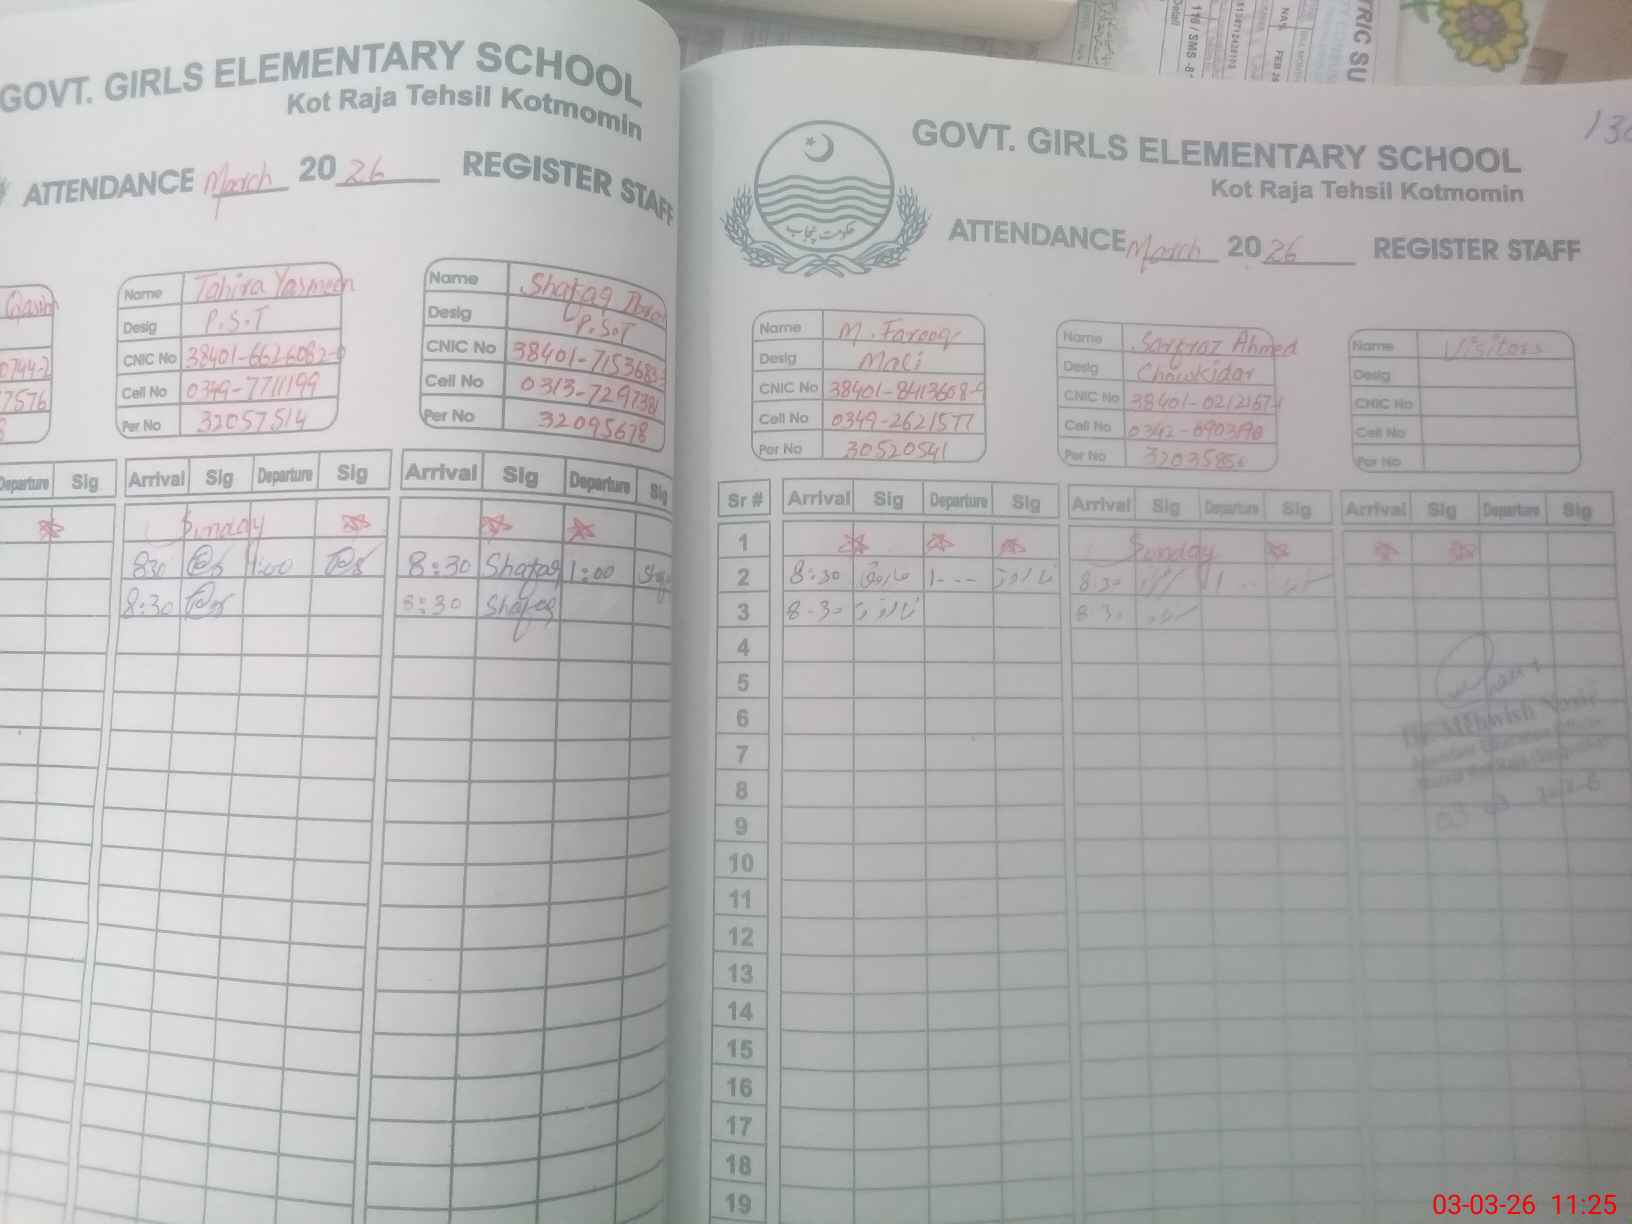 GOVT. GIRLS ELEMENTARY SCHOOL
Kot Raja Tehsil Kotmomin
ATTENDANCE March 2026 REGISTER STAFF
Qasim
0744-2
7576
8
Name Tahira Yasmeen
Desig P.S.T
CNIC No 38401-6626082-0
Cell No 0349-7711199
Per No 32057514
Name Shafaq
Desig P.S.T
CNIC No 38401-7153683-
Cell No 0313-7297381
Per No 32095678
Departure Sig Arrival Sig Departure Sig Arrival Sig Departure Sig
Sunday
830 1:00 8:30 Shafaq 1:00
8:30 8:30 Shafaq
130
GOVT. GIRLS ELEMENTARY SCHOOL
Kot Raja Tehsil Kotmomin
حکومت پنجاب
ATTENDANCE March 2026 REGISTER STAFF
Name M. Farooq
Desig Mali
CNIC No 38401-8413608-9
Cell No 0349-2621577
Per No 30520541
Name Sarfraz Ahmed
Desig Chowkidar
CNIC No 38401-0212167-1
Cell No 0342-
Per No 3203585
Name Visitors
Desig
CNIC No
Cell No
Per No
Sr # Arrival Sig Departure Sig Arrival Sig Departure Sig Arrival Sig Departure Sig
1 Sunday
2 8:30 فاروق 1-00 فاروق 8:30 1
3 8-30 فاروق 8-30
4
5
6
7
8
9
10
11
12
13
14
15
16
17
18
19
03 03 2026
TRIC SU
116 / SMS -8
FEB 26
03-03-26 11:25